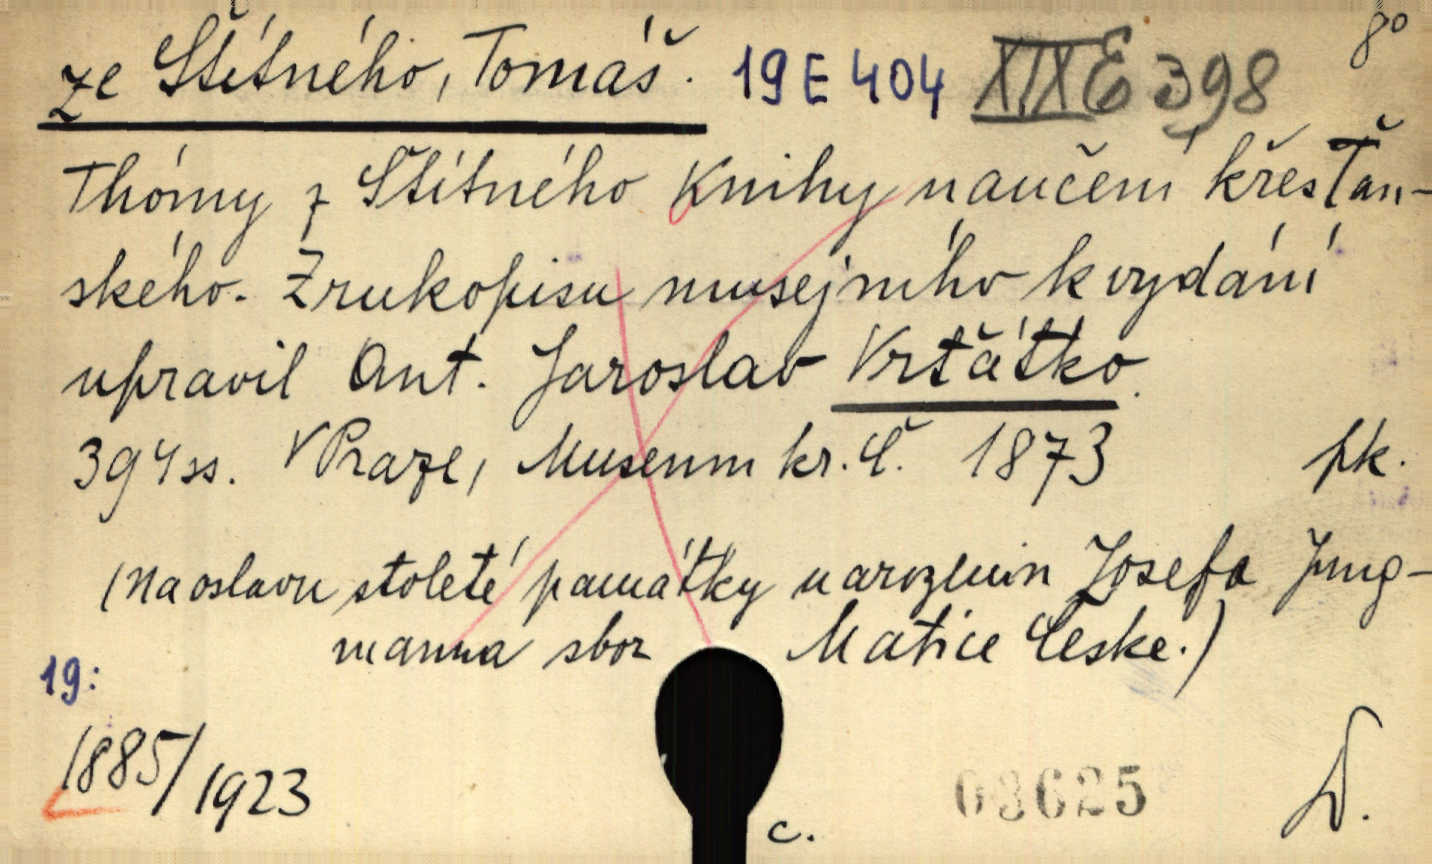 8°
ze Štítného, Tomáš. 19 E 404 XIX E 398
Thómy z Štítného Knihy naučení křesťan-
ského. Z rukopisu musejního k vydání
upravil Ant. Jaroslav Vrťátko.
394 ss. V Praze, Museum kr. Č. 1873 pk.
(Na oslavu stoleté památky narozenin Josefa Jung-
manna sbor Matice České.)
19:
1885/1923
03625
c.